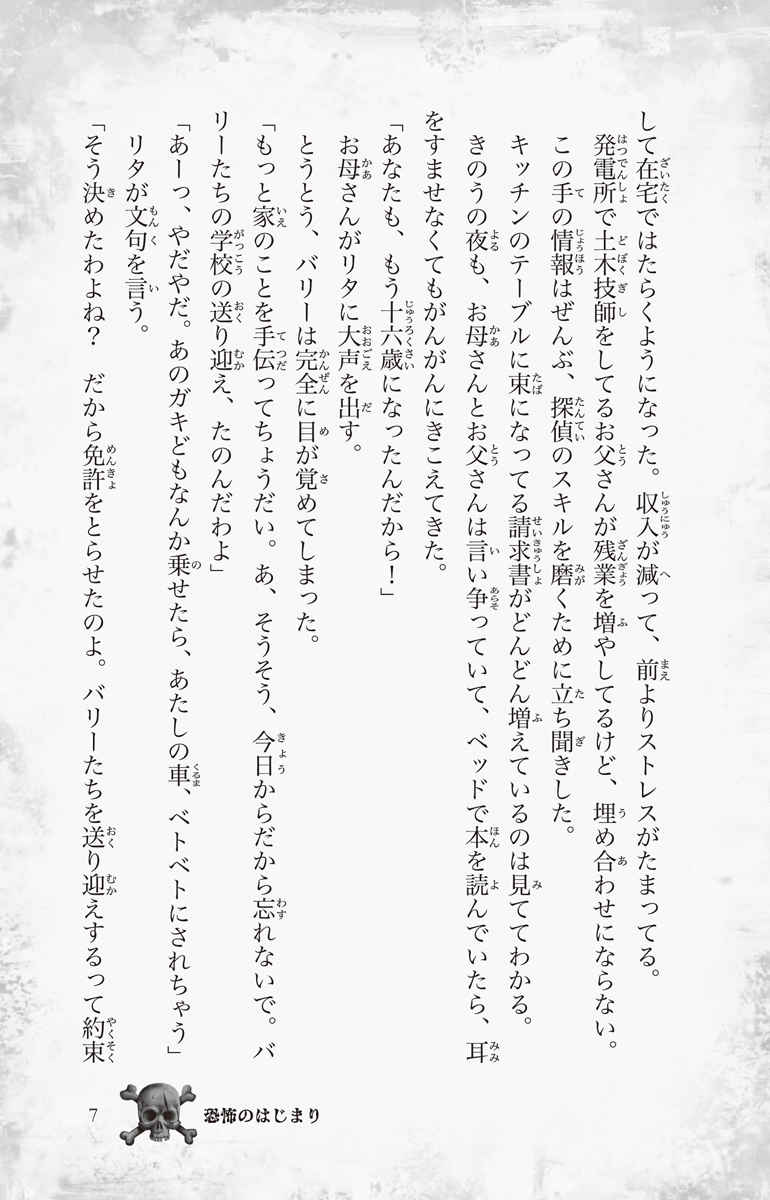 して在宅ではたらくようになった。収入が減って、前よりストレスがたまってる。
発電所で土木技師をしてるお父さんが残業を増やしてるけど、埋め合わせにならない。
この手の情報はぜんぶ、探偵のスキルを磨くために立ち聞きした。
キッチンのテーブルに束になってる請求書がどんどん増えているのは見ててわかる。
きのうの夜も、お母さんとお父さんは言い争っていて、ベッドで本を読んでいたら、耳
をすませなくてもがんがんにきこえてきた。
「あなたも、もう十六歳になったんだから！」
お母さんがリタに大声を出す。
とうとう、バリーは完全に目が覚めてしまった。
「もっと家のことを手伝ってちょうだい。あ、そうそう、今日からだから忘れないで。バ
リーたちの学校の送り迎え、たのんだわよ」
「あーっ、やだやだ。あのガキどもなんか乗せたら、あたしの車、ベトベトにされちゃう」
リタが文句を言う。
「そう決めたわよね？　だから免許をとらせたのよ。バリーたちを送り迎えするって約束
7
恐怖のはじまり